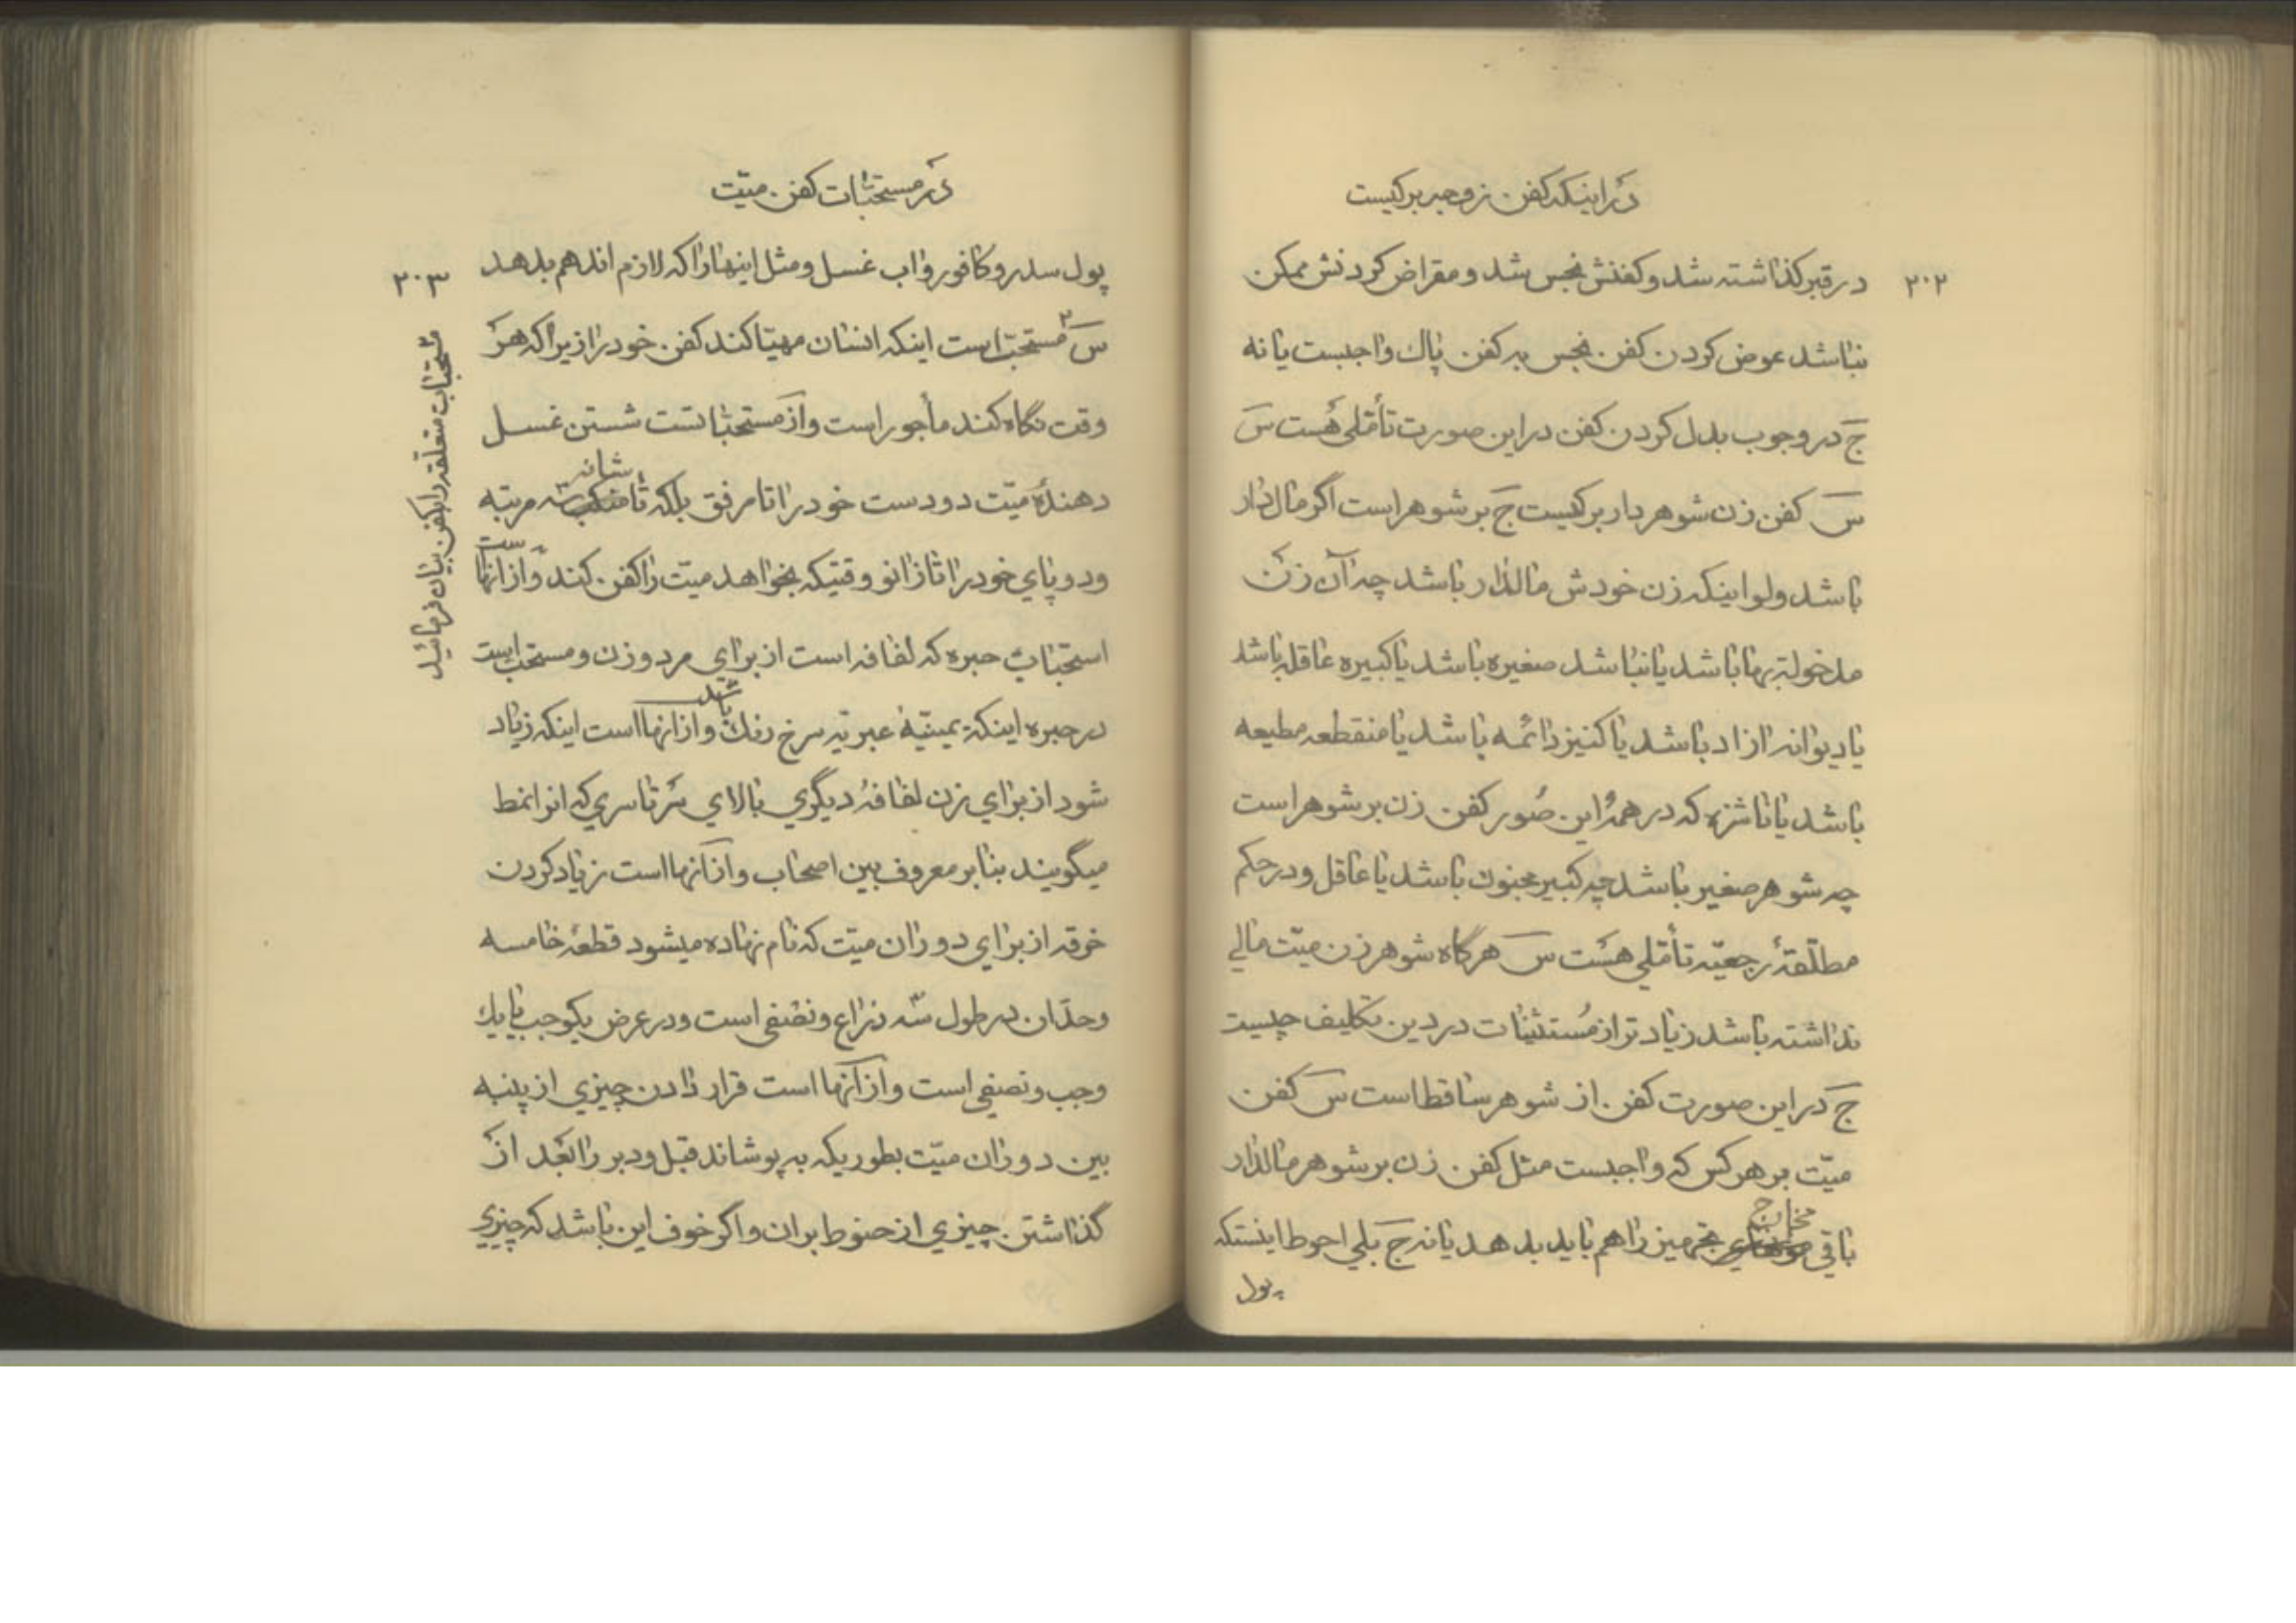 در اینکه کفن زوجه بر کیست
۲۰۲
در قبر گذاشته شد و کفنش نجس شد و مقراض کردنش ممکن
نباشد عوض کردن کفن نجس به کفن پاک واجبست یا نه
ج در وجوب بدل کردن کفن در این صورت تأملی هست س
س کفن زن شوهردار بر کیست ج بر شوهر است اگر مال دار
باشد ولو اینکه زن خودش مالدار باشد چه آن زن
مدخولة بها باشد یا نباشد صغیره باشد یا کبیره عاقله باشد
یا دیوانه ازاد باشد یا کنیز دائمه باشد یا منقطعه مطیعه
باشد یا ناشزه که در همهٔ این صُور کفن زن بر شوهر است
چه شوهر صغیر باشد چه کبیر مجنون باشد یا عاقل و در حکم
مطلّقهٔ رجعیّه تأملی هست س هرگاه شوهر زن میّت مالی
نداشته باشد زیادتر از مُستثنیات در دین تکلیف چیست
ج در این صورت کفن از شوهر ساقط است س کفن
میّت بر هر کس که واجبست مثل کفن زن بر شوهر مالدار
باقی مخارج تجهیز را هم باید بدهد یا نه ج بلی احوط اینستکه
پول
در مستحبّات کفن میّت
۲۰۳
پول سدر و کافور و اب غسل و مثل اینها را که لازم اند هم بدهد
س۲ مستحبّ است اینکه انسان مهیّا کند کفن خود را زیرا که هر
وقت نگاه کند مأجور است و از مستحبّا تست شستن غسل
دهندهٔ میّت دو دست خود را تا مرفق بلکه تا شانه سه مرتبه
و دو پای خود را تا زانو وقتیکه بخواهد میّت را کفن کند و از انها ست
استحباب حبره که لفافه است از برای مرد و زن و مستحب است
در حبره اینکه یمنیّهٔ عبریّه سرخ رنگ باشد و از انها است اینکه زیاد
شود از برای زن لفافهٔ دیگری بالای سرتاسری که انرا نمط
میگویند بنا بر معروف بین اصحاب و از آنها است زیاد کردن
خرقه از برای دو ران میّت که نام نهاده میشود قطعهٔ خامسه
و حدّ ان در طول سه ذراع و نصفی است و در عرض یکوجب یا یک
وجب و نصفی است و از آنها است قرار دادن چیزی از پنبه
بین دو ران میّت بطوریکه به پوشاند قبل و دبر را بَعد از
گذاشتن چیزی از حنوط بر ان و اگر خوف این باشد که چیزی
مستحبّات متعلّقه را بکفن بیان فرمائید